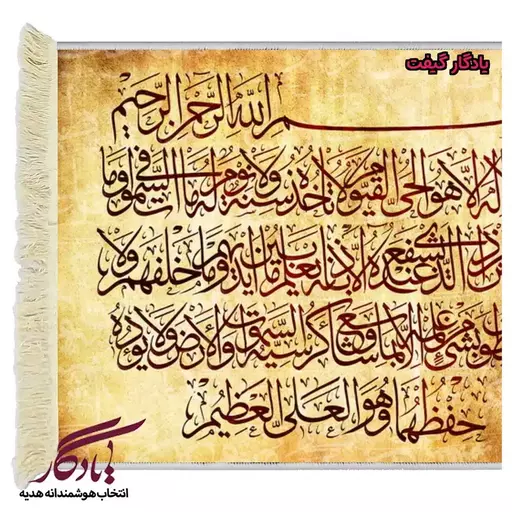 یادگار گیفت
بسم الله الرحمن الرحیم
له الا هو الحی القیوم لا تأخذه سنة ولا نوم له ما فی السموات وما
ذی یشفع عنده الا باذنه یعلم ما بین ایدیهم وما خلفهم ولا
بشیء من علمه الا بما شاء وسع کرسیه السموات والارض ولا یؤده
حفظهما وهو العلی العظیم
یادگار
انتخاب هوشمندانه هدیه